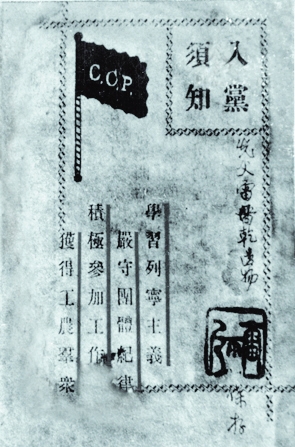 入黨
須知
C.C.P.
學習列寧主義
嚴守團體紀律
積極參加工作
獲得工農羣衆
父雷晉乾遺物
保存